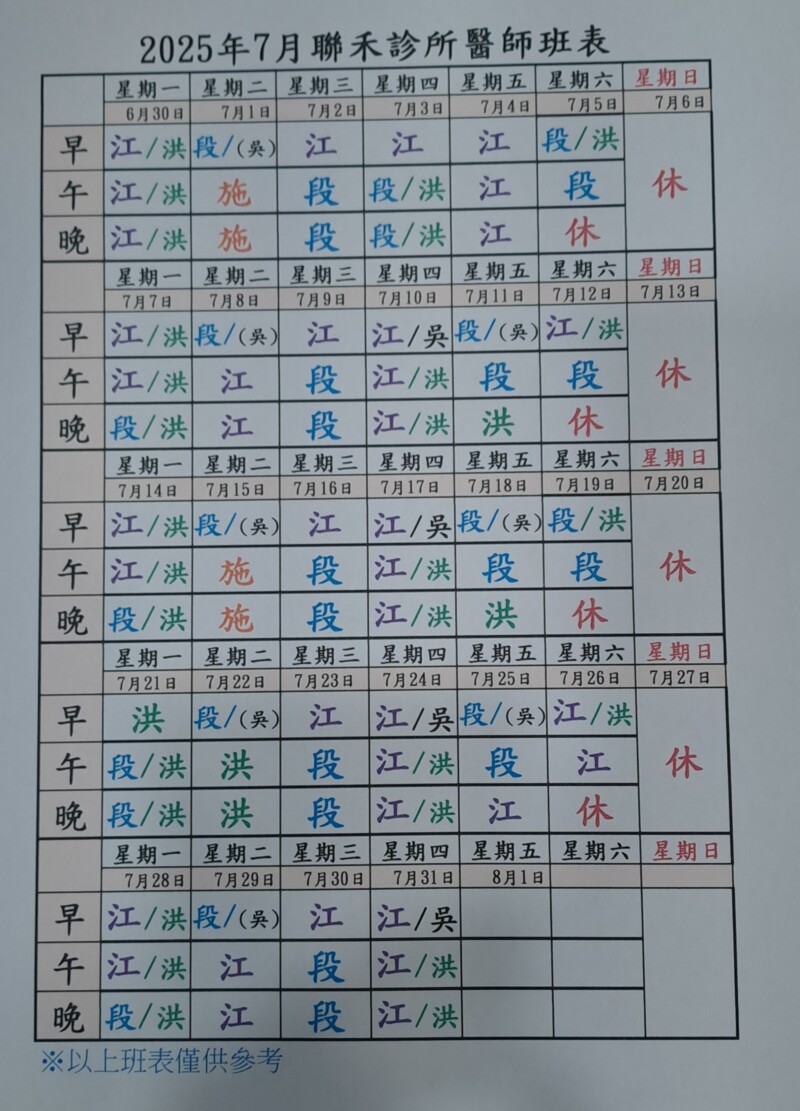 2025年7月聯禾診所醫師班表
星期一 星期二 星期三 星期四 星期五 星期六 星期日
6月30日 7月1日 7月2日 7月3日 7月4日 7月5日 7月6日
早 江/洪 段/(吳) 江 江 江 段/洪 休
午 江/洪 施 段 段/洪 江 段
晚 江/洪 施 段 段/洪 江 休
星期一 星期二 星期三 星期四 星期五 星期六 星期日
7月7日 7月8日 7月9日 7月10日 7月11日 7月12日 7月13日
早 江/洪 段/(吳) 江 江/吳 段/(吳) 江/洪 休
午 江/洪 江 段 江/洪 段 段
晚 段/洪 江 段 江/洪 洪 休
星期一 星期二 星期三 星期四 星期五 星期六 星期日
7月14日 7月15日 7月16日 7月17日 7月18日 7月19日 7月20日
早 江/洪 段/(吳) 江 江/吳 段/(吳) 段/洪 休
午 江/洪 施 段 江/洪 段 段
晚 段/洪 施 段 江/洪 洪 休
星期一 星期二 星期三 星期四 星期五 星期六 星期日
7月21日 7月22日 7月23日 7月24日 7月25日 7月26日 7月27日
早 洪 段/(吳) 江 江/吳 段/(吳) 江/洪 休
午 段/洪 洪 段 江/洪 段 江
晚 段/洪 洪 段 江/洪 江 休
星期一 星期二 星期三 星期四 星期五 星期六 星期日
7月28日 7月29日 7月30日 7月31日 8月1日
早 江/洪 段/(吳) 江 江/吳
午 江/洪 江 段 江/洪
晚 段/洪 江 段 江/洪
※以上班表僅供參考